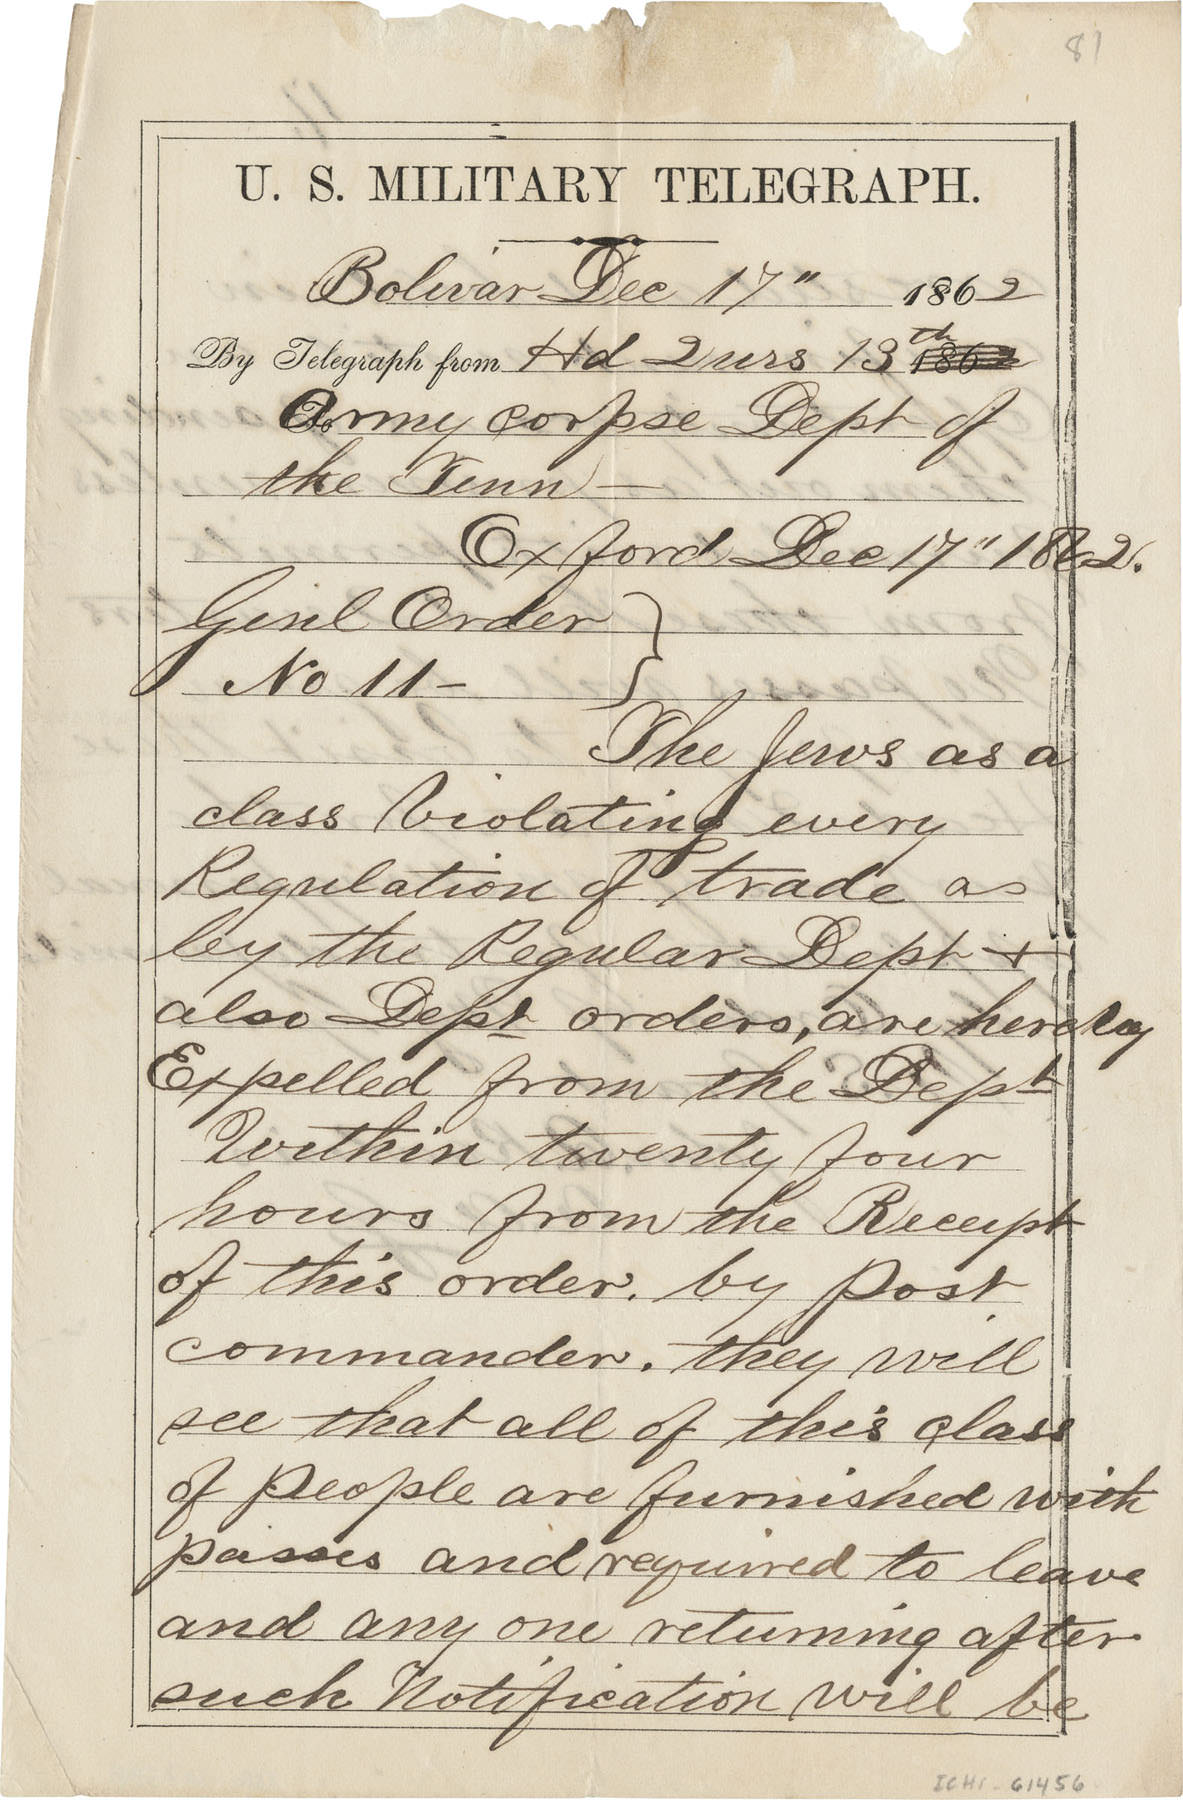 81
U. S. MILITARY TELEGRAPH.
Bolivar Dec 17" 1862
By Telegraph from Hd Qurs 13th 1862
Army corpse Dept of
the Tenn —
Oxford Dec 17" 1862.
Genl Order }
No 11 —
The Jews as a
class Violating every
Regulation of trade as
by the Regular Dept +
also Dept orders, are hereby
Expelled from the Dept
Within twenty four
hours from the Receipt
of this order. by Post
commander. they will
see that all of this class
of people are furnished with
passes and required to leave
and any one returning after
such Notification will be
ICHi-61456